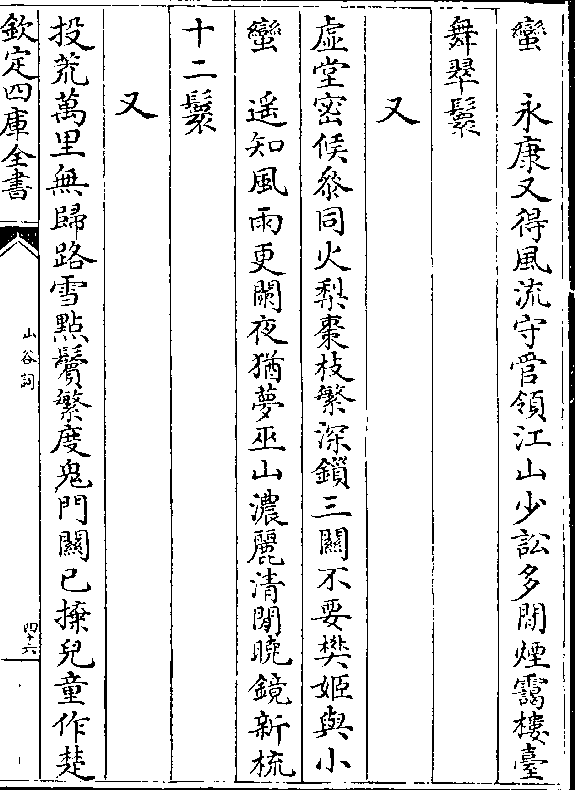 蠻　永康又得風流守管領江山少訟多閒煙靄樓臺
舞翠鬟
又
虛堂密候參同火梨棗枝繁深鎖三關不要樊姬與小
蠻　遥知風雨更闌夜猶夢巫山濃麗清閒曉鏡新梳
十二鬟
又
投荒萬里無歸路雪點鬢繁度鬼門關已拚兒童作楚
欽定四庫全書
山谷詞
四十六